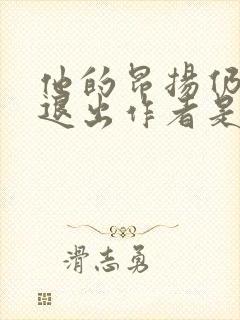 他的昂扬仍
退出作者是
滑志勇